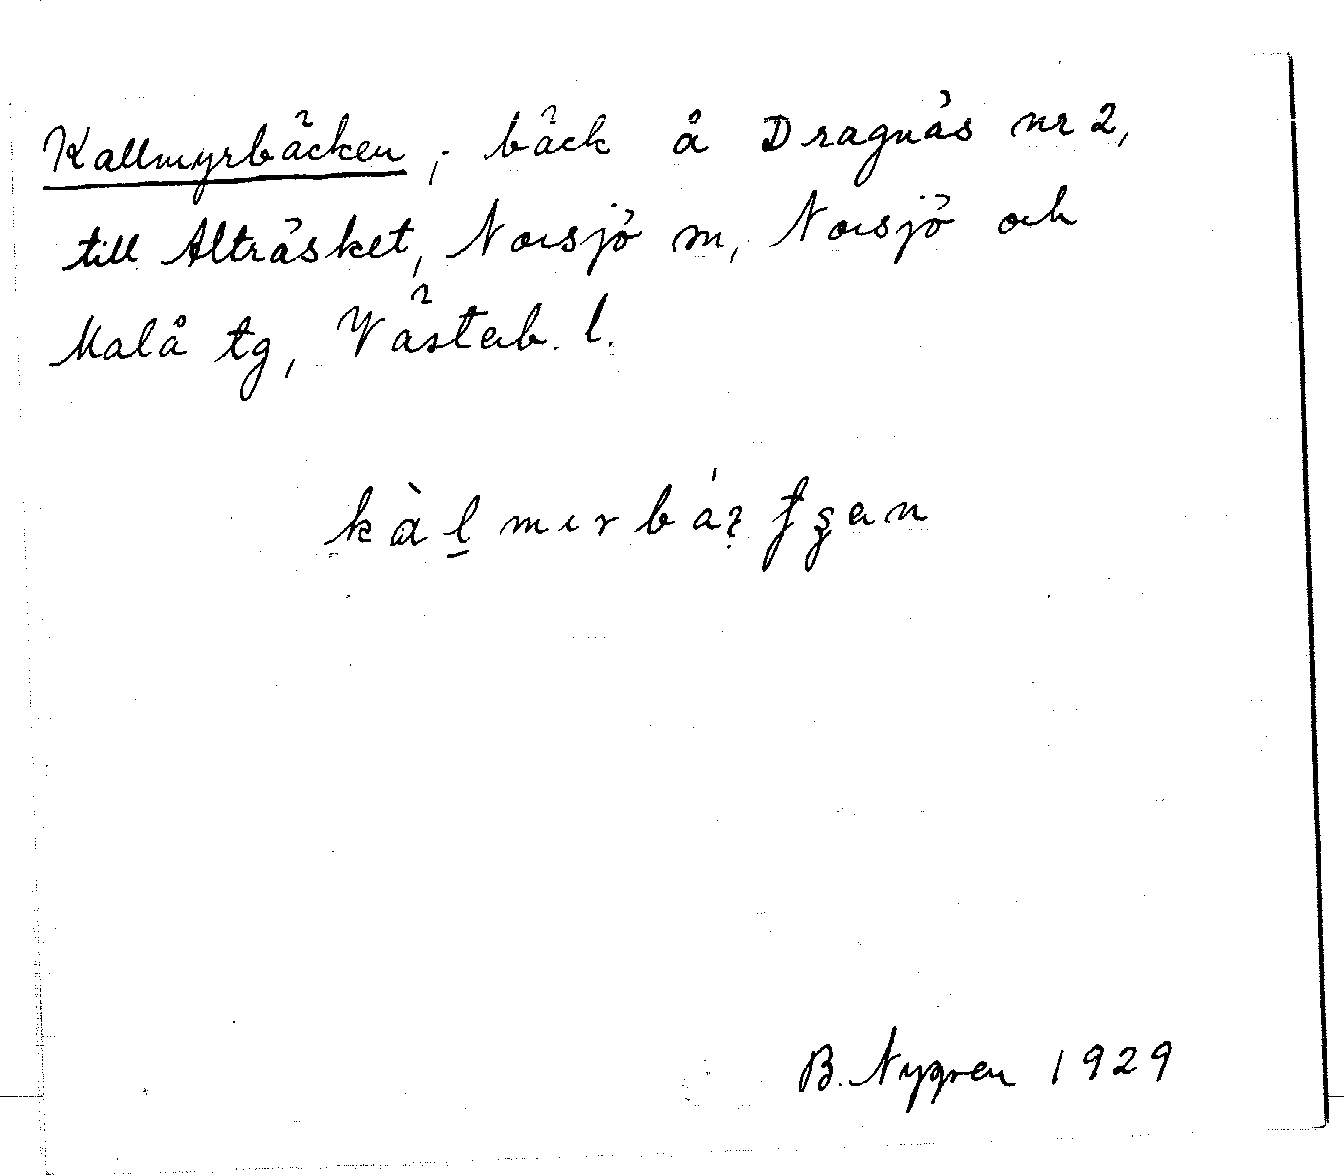 Kallmyrbäcken; bäck å Dragnäs nr 2,
till Alträsket, Norsjö sn, Norsjö och
Malå tg, Västerb. l.
B. Nygren 1929